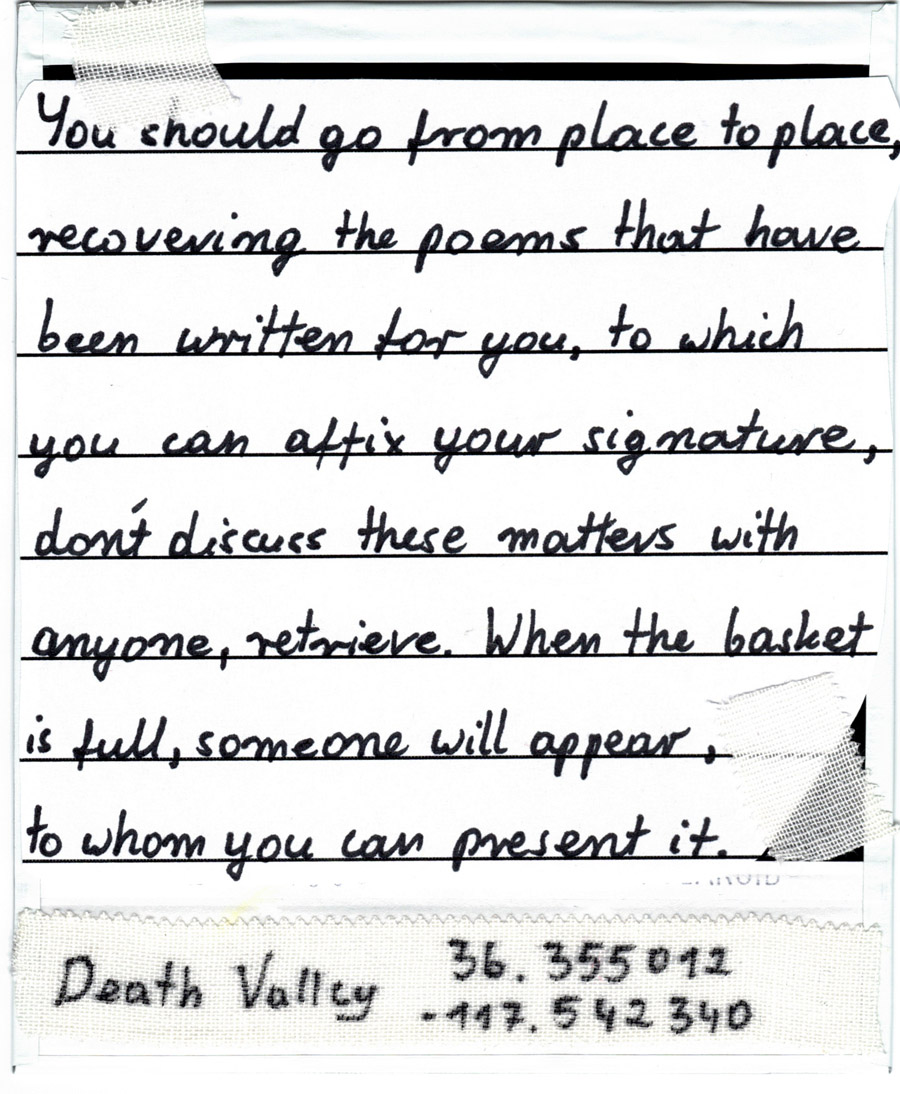 You should go from place to place,
recovering the poems that have
been written for you, to which
you can affix your signature,
don't discuss these matters with
anyone, retrieve. When the basket
is full, someone will appear,
to whom you can present it.
Death Valley
36.355012
-117.542340